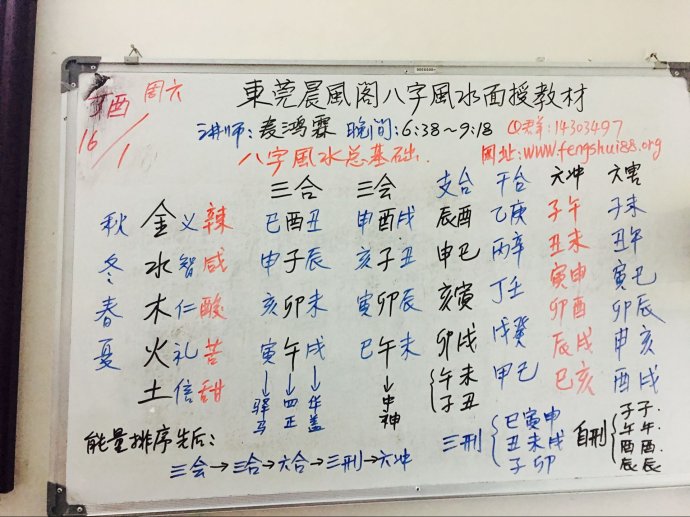 丁酉 周六
16/1
東莞晨風阁八字風水面授教材
讲师:麦鸿霖 晚间:6:38~9:18 Q群:14303497
八字風水总基础. 网址:www.fengshui88.org
三合 三会 支合 干合 六冲 六害
秋 金 义 辣 巳酉丑 申酉戌 辰酉 乙庚 子午 子未
冬 水 智 咸 申子辰 亥子丑 申巳 丙辛 丑未 丑午
春 木 仁 酸 亥卯未 寅卯辰 亥寅 丁壬 寅申 寅巳
夏 火 礼 苦 寅午戌 巳午未 卯戌 戊癸 卯酉 卯辰
土 信 甜 午未 甲己 辰戌 申亥
子丑 巳亥 酉戌
↓驿马 ↓四正 ↓华盖 ↓中神
能量排序先后:
三会→三合→六合→三刑→六冲
三刑 { 巳寅申
丑未戌
子卯
自刑 { 子子.
午午.
酉酉.
辰辰.